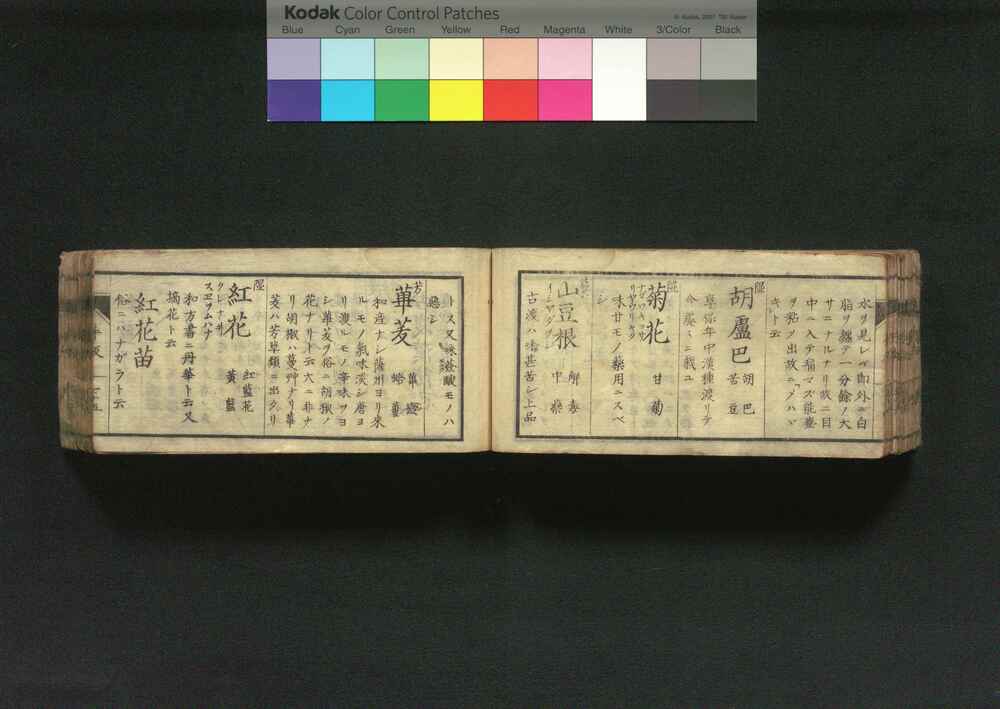 Kodak Color Control Patches
© Kodak, 2007 TM: Kodak
Blue Cyan Green Yellow Red Magenta White 3/Color Black
水ヲ見レバ即外ニ白
脂ヲ纏テ一分餘ノ大
サニナルナリ故ニ目
中ニ入テ
ヲ粘ツ出故ニ
キト云
隰
胡盧巴 胡巴 苦豆
享保年中漢種渡リテ
今處々ニ栽ユ
隰
菊花 甘菊
味甘モノ藥用ニスベ
シ
山豆根 解毒 中藥
古渡ハ味甚苦シ上品
トス又味薟鹹モノハ
惡シ
芳
蓽茇
和産ナシ薩州ヨリ來
ルモノ氣味淡シ唐ヨ
リ渡ルモノ辛味ツヨ
シ蓽茇ヲ俗ニ胡椒ノ
花ナリト云大ニ非ナ
リ胡椒ハ蔓艸ナリ蓽
茇ハ芳草類ニ出タリ
隰
紅花 紅藍花 黃藍
クレナヰ
スヱツムハナ
和方書ニ丹華ト云又
橘花ト云
紅花苗
俗ニハナガラト云